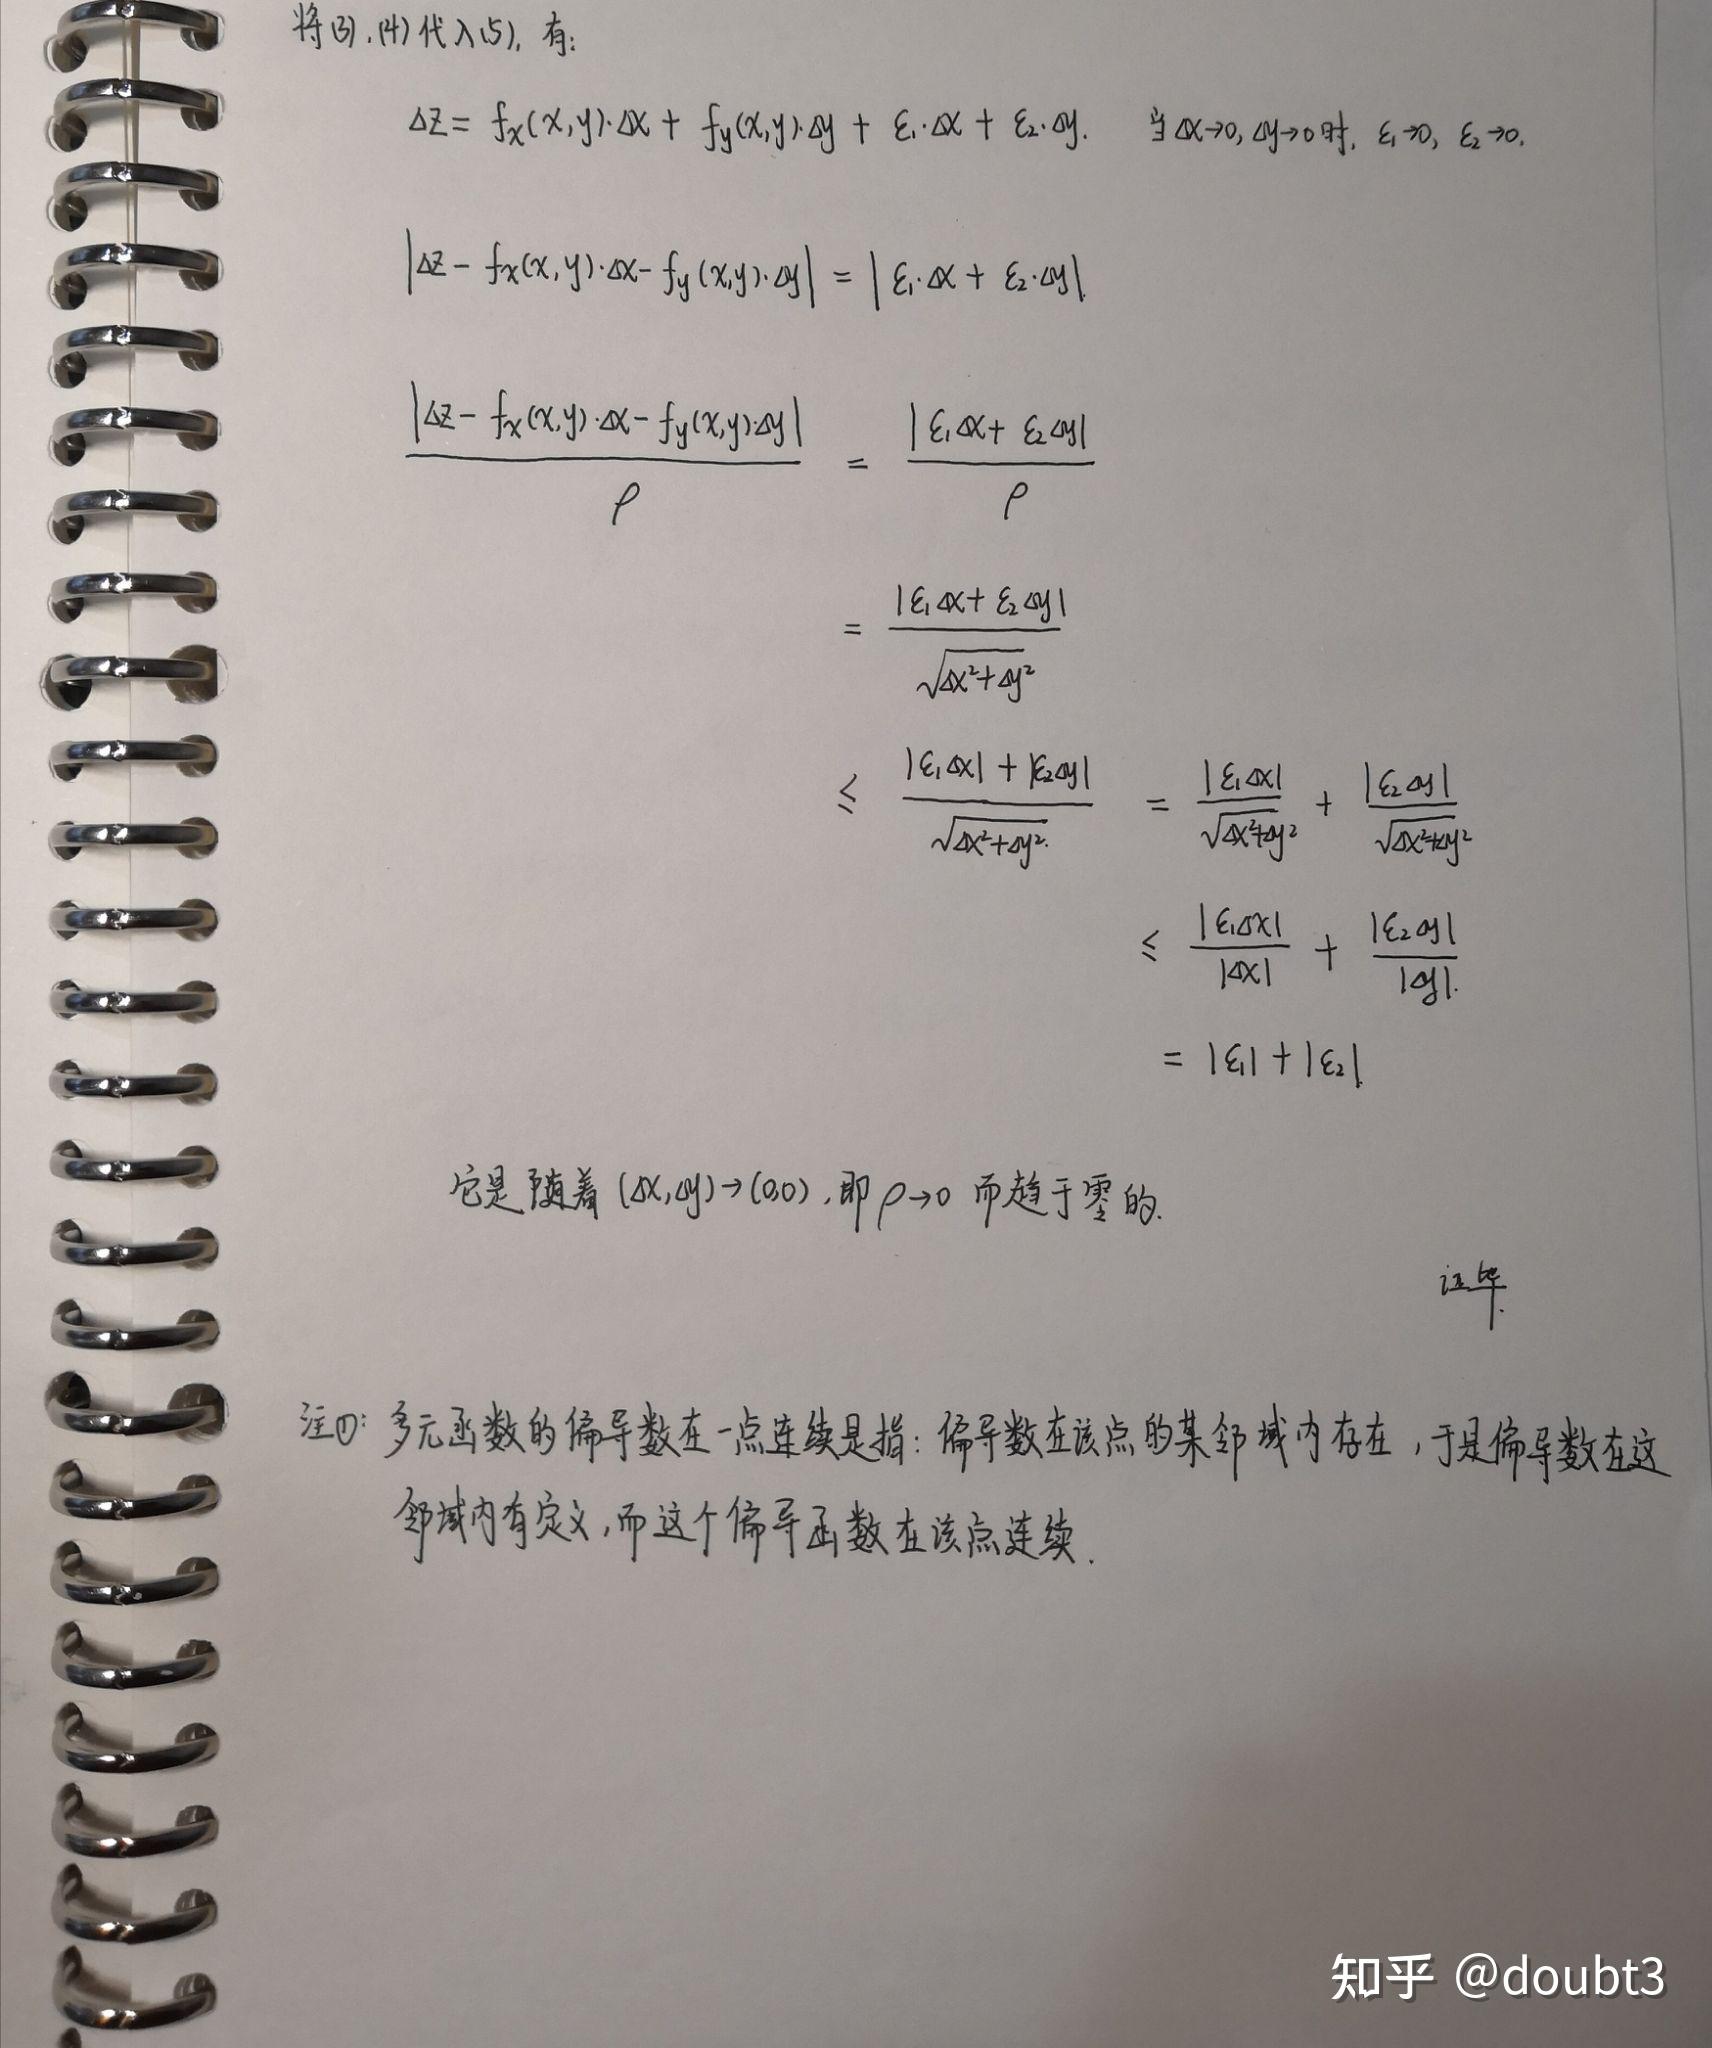 将(3).(4)代入(5),有:
Δz = fx(x,y)·Δx + fy(x,y)·Δy + ε₁·Δx + ε₂·Δy. 当Δx→0,Δy→0时, ε₁→0, ε₂→0.
|Δz - fx(x,y)·Δx - fy(x,y)·Δy| = |ε₁·Δx + ε₂·Δy|.
|Δz - fx(x,y)·Δx - fy(x,y)·Δy| / ρ = |ε₁Δx + ε₂Δy| / ρ
= |ε₁Δx + ε₂Δy| / √(Δx²+Δy²)
≤ (|ε₁Δx| + |ε₂Δy|) / √(Δx²+Δy²) = |ε₁Δx| / √(Δx²+Δy²) + |ε₂Δy| / √(Δx²+Δy²)
≤ |ε₁Δx| / |Δx| + |ε₂Δy| / |Δy|.
= |ε₁| + |ε₂|.
它是随着(Δx,Δy)→(0,0),即ρ→0而趋于零的.
证毕.
注①: 多元函数的偏导数在一点连续是指: 偏导数在该点的某邻域内存在,于是偏导数在这
邻域内有定义,而这个偏导函数在该点连续.
知乎 @doubt3